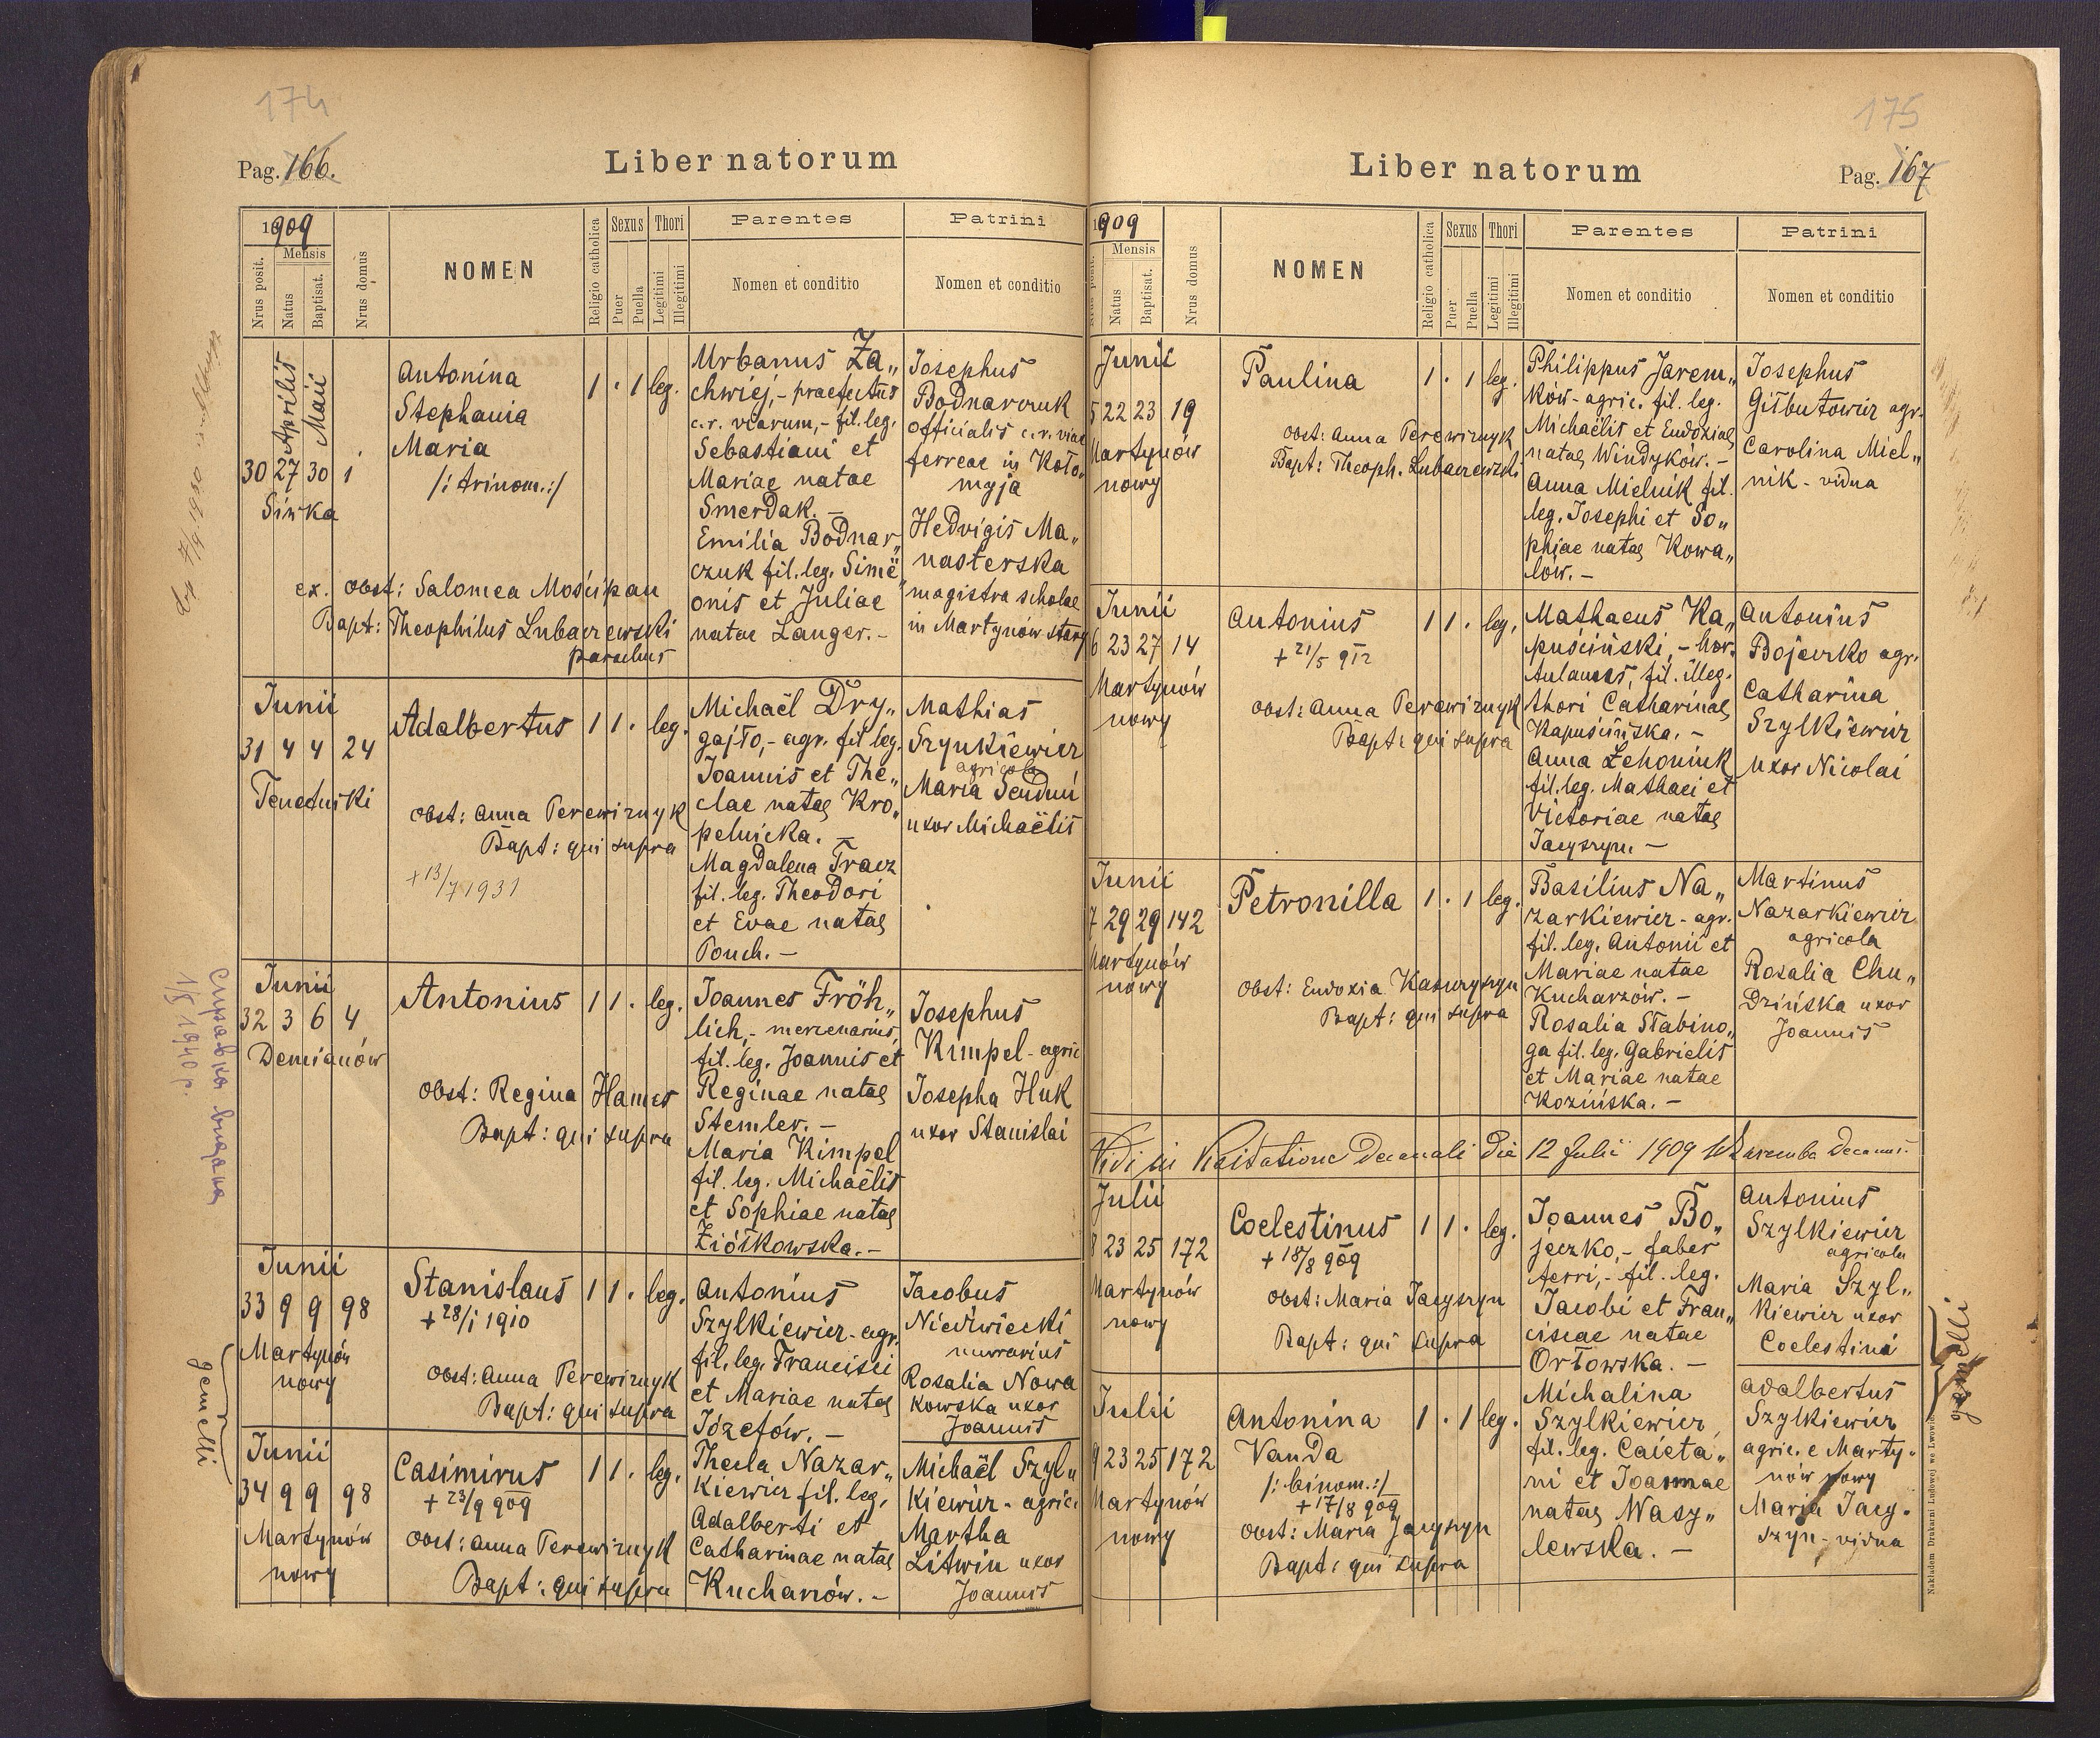 174
Pag. 166.
Liber natorum
1909
Nrus posit.
Mensis
Natus
Baptisat.
Nrus domus
NOMEN
Religio catholica
Sexus
Puer
Puella
Thori
Legitimi
Illegitimi
Parentes
Nomen et conditio
Patrini
Nomen et conditio
Aprilis
Maii
30 27 30 1
Siwka
Antonina
Stephania
Maria
/: trinom.:/
1 . 1 leg.
ex. obst: Salomea Mościpan
Bapt: Theophilus Lubaczewski
parochus
Urbanus Za„
chwiej,- praefectus
c.r. viarum,- fil. leg.
Sebastiani et
Mariae natae
Smerdak. -
Emilia Bodnar„
czuk fil. leg. Sime„
onis et Juliae
natae Langer. -
Josephus
Bodnarczuk
officialis c.r. viae
ferreae in Koło„
myja
Hedvigis Ma„
nasterska
magistra scholae
in Martynów stary
Junii
31 4 4 24
Tenetniki
Adalbertus
1 1 . leg.
obst: Anna Perewiznyk
Bapt: qui supra
+ 13/7 1931
Michaël Dry„
gajło,- agr. fil. leg.
Joannis et The„
clae natae Kro„
pelnicka. -
Magdalena Tracz
fil. leg. Theodori
et Evae natae
Pouch. -
Mathias
Szynkiewicz
agricola
Maria Senduń
uxor Michaëlis
Junii
32 3 6 4
Demianów
Antonius
1 1 . leg.
obst: Regina Hames
Bapt: qui supra
Joannes Fröh„
lich,- mercenarius,
fil. leg. Joannis et
Reginae natae
Stemler. -
Maria Kimpel
fil. leg. Michaëlis
et Sophiae natae
Ziółkowska. -
Josephus
Kimpel - agric.
Josepha Huk
uxor Stanislai
1/5 1940 г.
gemelli
Junii
33 9 9 98
Martynów
nowy
Stanislaus
+ 28/1 1910
1 1 . leg.
obst: Anna Perewiznyk
Bapt: qui supra
Antonius
Szylkiewicz - agr.
fil. leg. Francisci
et Mariae natae
Józefów. -
Thecla Nazar„
kiewicz fil. leg.
Adalberti et
Catharinae natae
Kucharów. -
Jacobus
Niedźwiecki
murarius
Rosalia Nowa
kowska uxor
Joannis
Junii
34 9 9 98
Martynów
nowy
Casimirus
+ 23/9 909
1 1 . leg.
obst: Anna Perewiznyk
Bapt: qui supra
Michaël Szyl„
kiewicz - agric.
Martha
Litwin uxor
Joannis
175
Liber natorum
Pag. 167
1909
Nrus posit.
Mensis
Natus
Baptisat.
Nrus domus
NOMEN
Religio catholica
Sexus
Puer
Puella
Thori
Legitimi
Illegitimi
Parentes
Nomen et conditio
Patrini
Nomen et conditio
Junii
5 22 23 19
Martynów
nowy
Paulina
1 . 1 leg.
obst: Anna Perewiznyk
Bapt: Theoph. Lubaczewski
Philippus Jarem„
ków - agric. fil. leg.
Michaëlis et Eudoxiae
natae Windyków. -
Anna Mielnik fil.
leg. Josephi et So„
phiae natae Kowa„
lów. -
Josephus
Gilbutowicz agr.
Carolina Miel„
nik - vidua
Junii
6 23 27 14
Martynów
nowy
Antonius
+ 21/5 912
1 1 . leg.
obst: Anna Perewiznyk
Bapt: qui supra
Mathaeus Ka„
puściński,- hor„
tulanus, fil. illeg.
thori Catharinae
Kapuścińska. -
Anna Lehoniuk
fil. leg. Mathaei et
Victoriae natae
Jacyszyn. -
Antonius
Bojeczko agr.
Catharina
Szylkiewicz
uxor Nicolai
Junii
7 29 29 142
Martynów
nowy
Petronilla
1 . 1 leg.
obst: Eudoxia
Bapt: qui supra
Basilius Na„
zarkiewicz - agr.
fil. leg. Antonii et
Mariae natae
Kucharzów. -
Rosalia Słabino„
ga fil. leg. Gabrielis
et Mariae natae
Kozińska. -
Martinus
Nazarkiewicz
agricola
Rosalia Chu„
dzińska uxor
Joannis
Vidi in Visitatione Decanali die 12 Julii 1909
Julii
8 23 25 172
Martynów
nowy
Coelestinus
+ 18/8 909
1 1 . leg.
obst: Maria Jacyszyn
Bapt: qui supra
Joannes Bo„
jeczko,- faber
ferri,- fil. leg.
Jacobi et Fran„
ciscae natae
Orłowska. -
Michalina
Szylkiewicz
fil. leg. Caieta„
ni et Joannae
natae Wasy„
lewska. -
Antonius
Szylkiewicz
agricola
Maria Szyl„
kiewicz uxor
Coelestini
gemelli
Julii
9 23 25 172
Martynów
nowy
Antonina
Vanda
/: binom.:/
+ 17/8 909
1 . 1 leg.
obst: Maria Jacyszyn
Bapt: qui supra
Adalbertus
Szylkiewicz
agric. e Marty„
nów nowy
Maria Jacy„
szyn - vidua
Nakładem Drukarni Ludowej we Lwowie